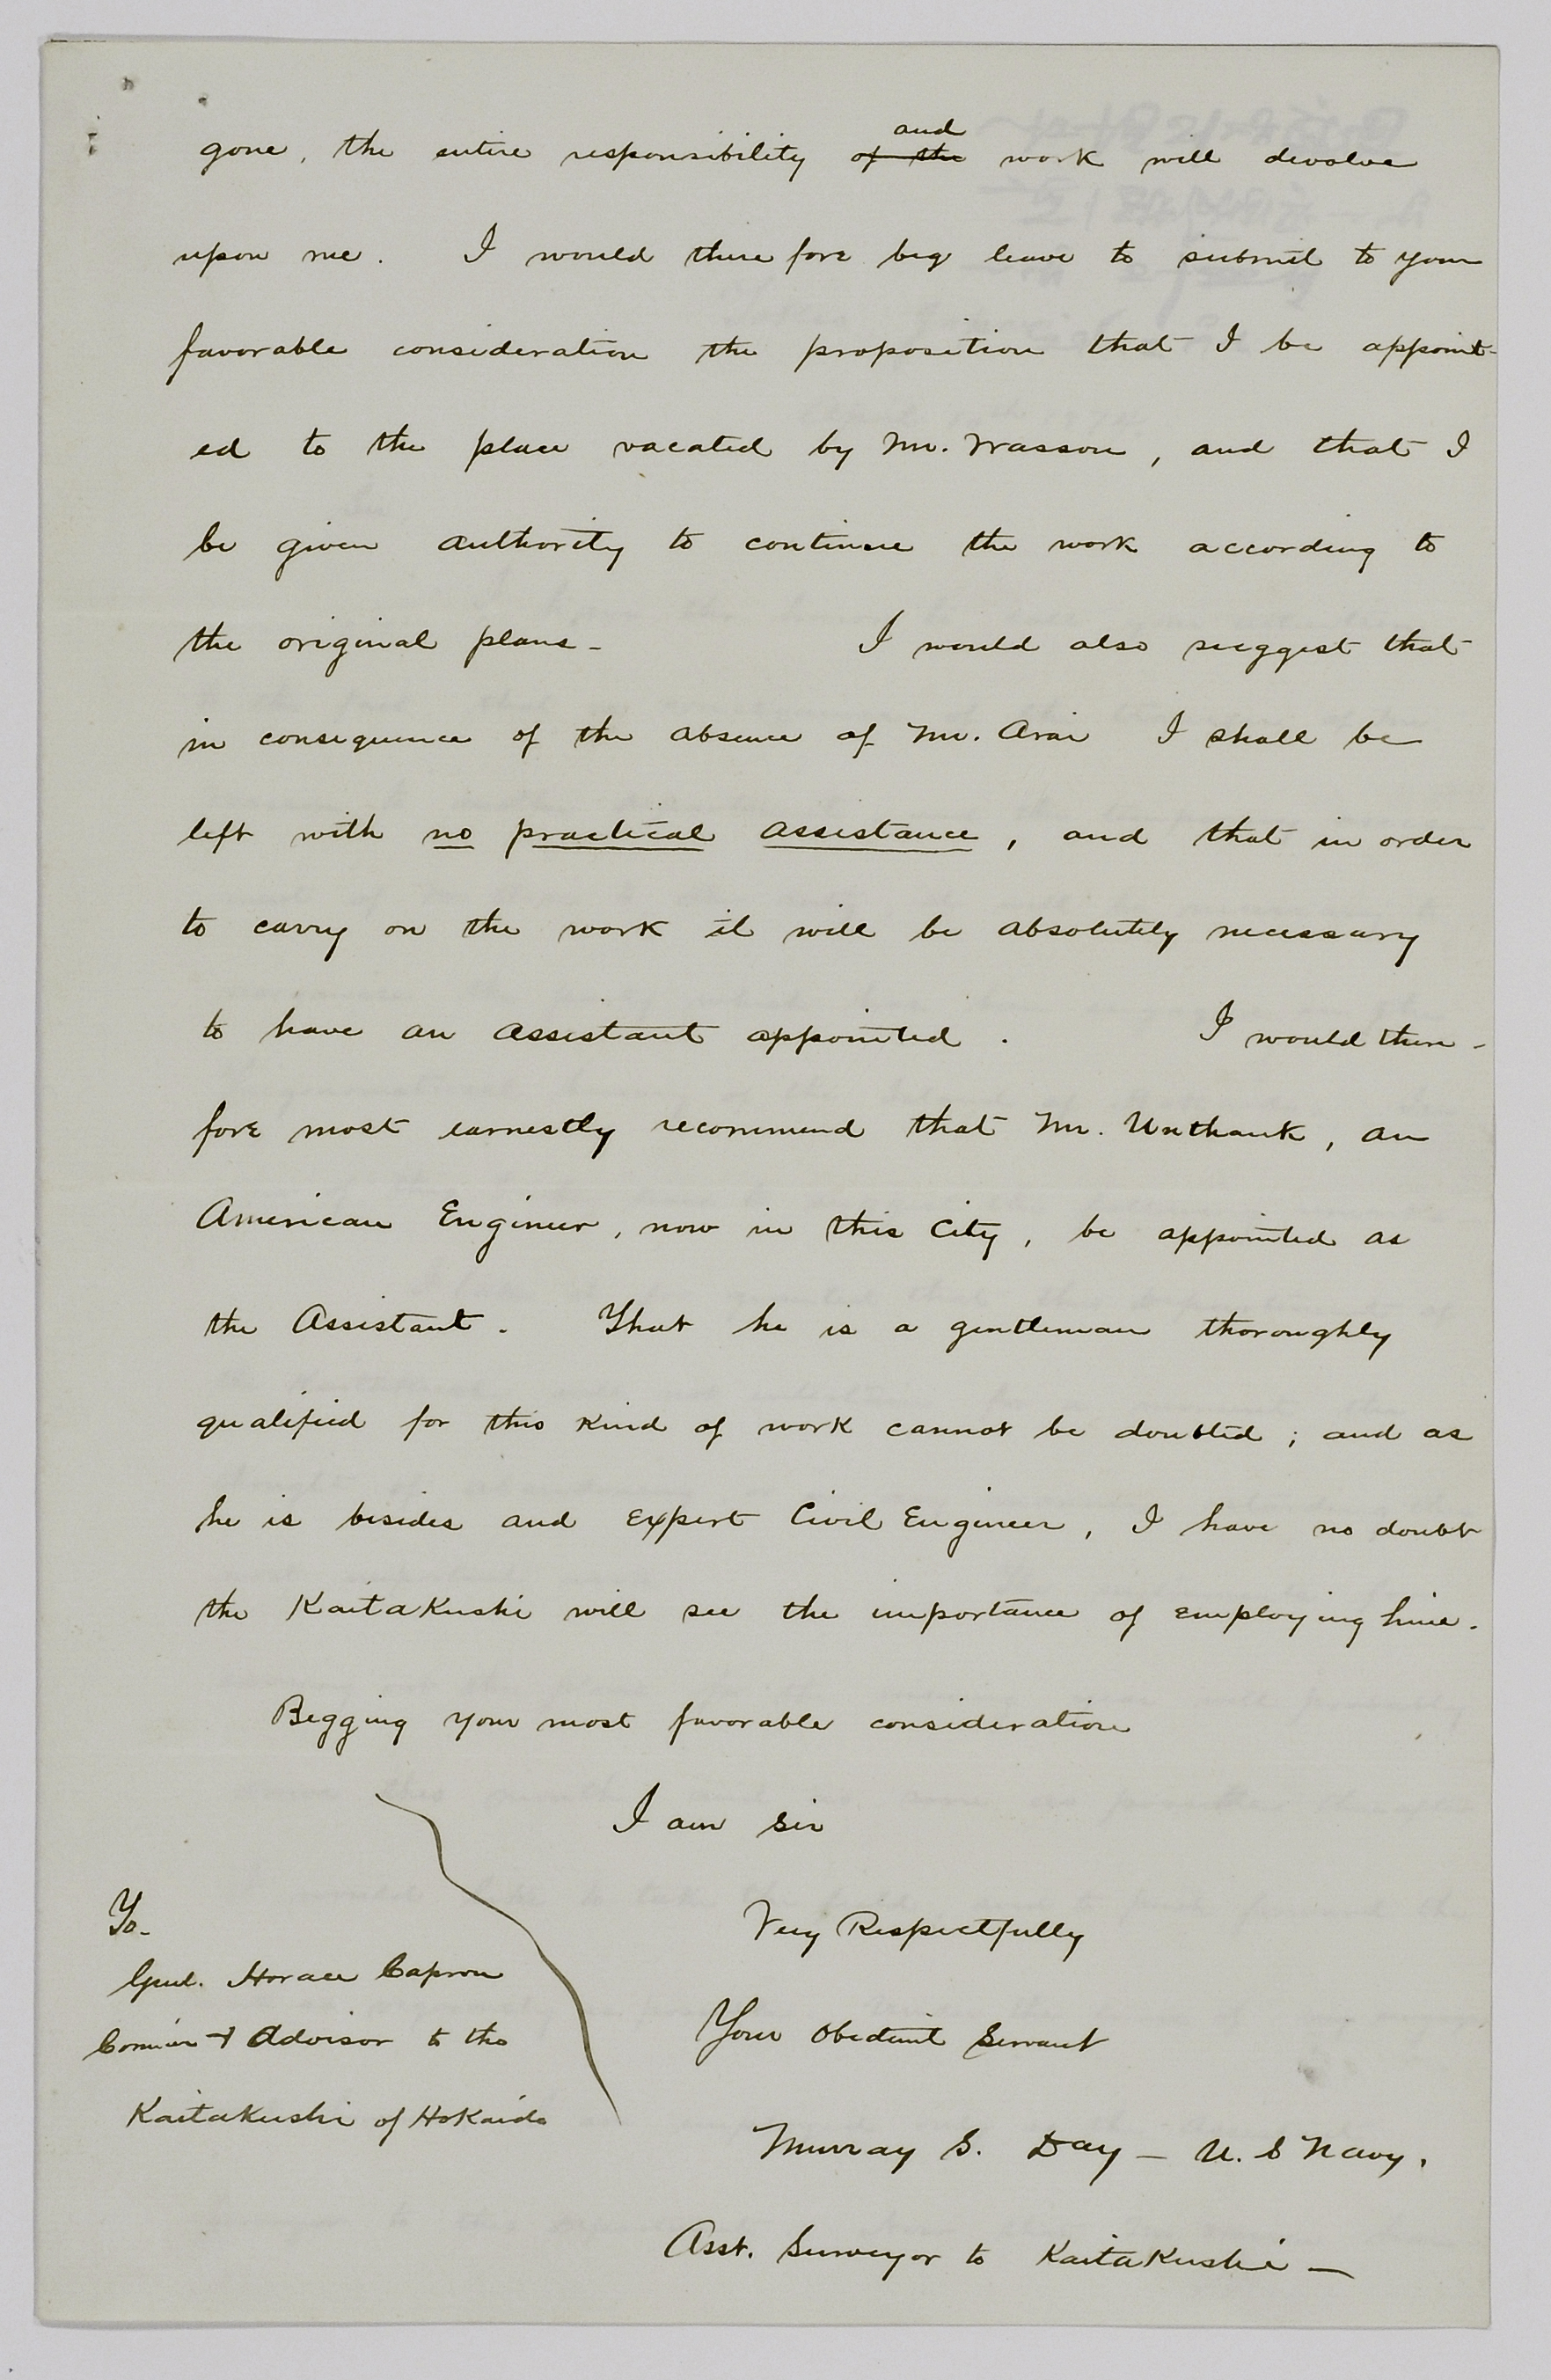 and
gone, the entire responsibility of the work will devolve
upon me. I would there fore beg leave to submit to your
favorable consideration the proposition that I be appoint-
ed to the place vacated by Mr. Wasson, and that I
be given authority to continue the work according to
the original plans - I would also suggest that
in consequence of the absence of Mr. Arai I shall be
left with no practical assistance, and that in order
to carry on the work it will be absolutely necessary
to have an assistant appointed. I would there-
fore most earnestly recommend that Mr. Unthank, an
American Engineer, now in this City, be appointed as
the Assistant. That he is a gentleman thoroughly
qualified for this kind of work cannot be doubted; and as
he is besides and expert Civil Engineer, I have no doubt
the Kaitakushi will see the importance of employing him.
Begging your most favorable consideration
I am Sir
Very Respectfully
Your Obedient Servant
Murray S. Day - U. S Navy.
Asst. Surveyor to Kaitakushi -
To.
Genl. Horace Capron
& Advisor to the
Kaitakushi of Hokaido